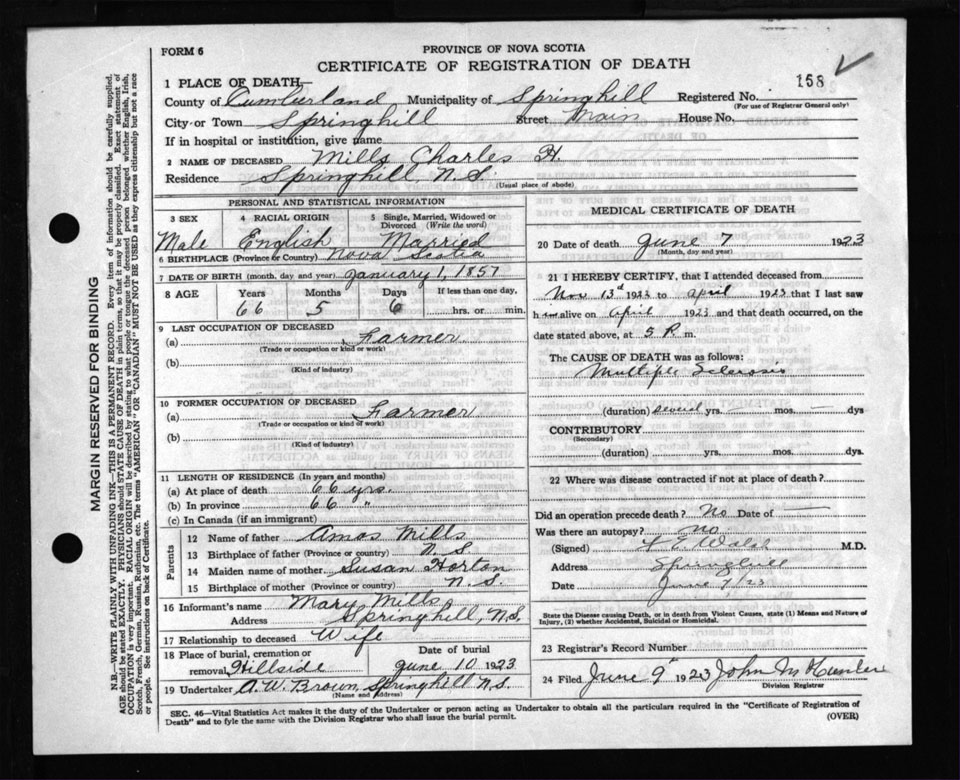 FORM 6
PROVINCE OF NOVA SCOTIA
CERTIFICATE OF REGISTRATION OF DEATH
158 ✓
1 PLACE OF DEATH—
County of Cumberland Municipality of Springhill Registered No.
(For use of Registrar General only)
City or Town Springhill Street Main House No.
If in hospital or institution, give name
2 NAME OF DECEASED Mills Charles H.
Residence Springhill, N.S.
(Usual place of abode)
PERSONAL AND STATISTICAL INFORMATION
3 SEX 4 RACIAL ORIGIN 5 Single, Married, Widowed or Divorced (Write the word)
Male English Married
6 BIRTHPLACE (Province or Country) Nova Scotia
7 DATE OF BIRTH (month, day and year) January 1, 1857
8 AGE Years Months Days If less than one day,
66 5 6 hrs. or min.
9 LAST OCCUPATION OF DECEASED
(a) Farmer
(Trade or occupation or kind or work)
(b)
(Kind of industry)
10 FORMER OCCUPATION OF DECEASED
(a) Farmer
(Trade or occupation or kind or work)
(b)
(Kind of industry)
11 LENGTH OF RESIDENCE (In years and months)
(a) At place of death 66 yrs.
(b) In province 66 "
(c) In Canada (if an immigrant)
Parents
12 Name of father Amos Mills
13 Birthplace of father (Province or country) N.S.
14 Maiden name of mother Susan Horton
15 Birthplace of mother (Province or country) N.S.
16 Informant's name Mary Mills
Address Springhill, N.S.
17 Relationship to deceased Wife
18 Place of burial, cremation or removal Hillside
Date of burial
June 10 1923
19 Undertaker A. W. Brown, Springhill N.S.
(Name and Address)
MEDICAL CERTIFICATE OF DEATH
20 Date of death June 7 1923
(Month, day and year)
21 I HEREBY CERTIFY, that I attended deceased from
Nov 13d 1922 to April 1923 that I last saw
him alive on April 1923 and that death occurred, on
date stated above, at 5 P. m.
The CAUSE OF DEATH was as follows:
Multiple Sclerosis
(duration) several yrs. — mos. — dys
CONTRIBUTORY
(Secondary)
(duration) yrs. mos. dys.
22 Where was disease contracted if not at place of death?
Did an operation precede death? No Date of —
Was there an autopsy? no
(Signed) Walsh M.D.
Address Springhill
Date June 7/23
State the Disease causing Death, or in death from Violent Causes, state (1) Means and Nature of
Injury, (2) whether Accidental, Suicidal or Homicidal.
23 Registrar's Record Number
24 Filed June 9th 1923 John M
Division Registrar
SEC. 46—Vital Statistics Act makes it the duty of the Undertaker or person acting as Undertaker to obtain all the particulars required in the "Certificate of Registration of
Death" and to fyle the same with the Division Registrar who shall issue the burial permit.
(OVER)
MARGIN RESERVED FOR BINDING
N.B.—WRITE PLAINLY WITH UNFADING INK—THIS IS A PERMANENT RECORD. Every item of information should be carefully supplied.
AGE should be stated EXACTLY. PHYSICIANS should STATE CAUSE OF DEATH in plain terms, so that it may be properly classified. Exact statement of
OCCUPATION is very important. RACIAL ORIGIN will be described by stating to what people or tongue the deceased person belonged whether English, Irish,
Scotch, French, German, Russian, Ruthenian, etc. The terms "AMERICAN" OR "CANADIAN" MUST NOT BE USED as they express citizenship but not a race
or people. See instructions on back of Certificate.